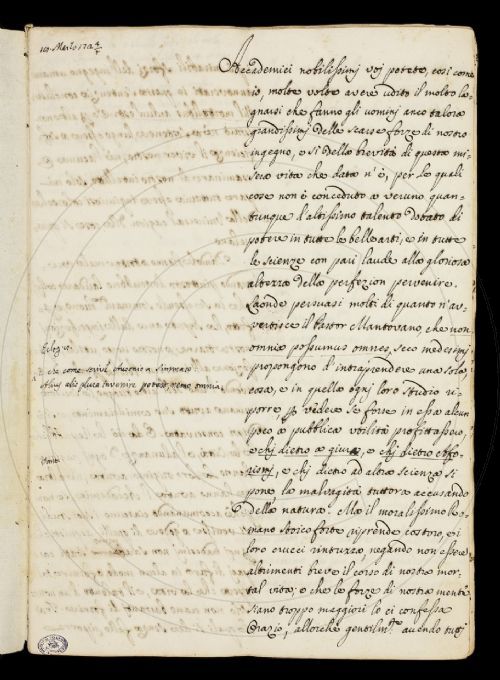 Accademici nobilissimi voi potete, così come
io, molte volte avere udito il molto la-
gnarsi che fanno gli uomini anco talora
grandissimi delle scarse forze di nostro
ingegno, e sì della brevità di questa mi-
sera vita che data n'è, per lo quali
cose non è conceduto a veruno quan-
tunque d'altissimo talento dotato di
potere in tutte le bell'arti, e in tutte
le scienze con pari laude alla gloriosa
altezza della perfezion pervenire.
Laonde persuasi molti di quanto n'av-
vertisce il Pastor Mantovano, che non
omnia possumus omnes, seco medesimi
propongono d'intraprendere una sola
cosa, e in quella ogni loro studio ri-
porre, vedere se forse in essa alcun
poco a pubblica utilità profittassero,
e chi dietro a giura, e chi dietro
e chi dietro ad altra scienza si
pone la malvagità tuttora accusando
della natura. Ma il moralissimo Ro-
mano Stoico forte riprende costoro, e i
loro crucci rintuzza, negando non essere
altrimenti breve il corso di nostra mor-
tal vita, e che le forze di nostra mente
siano troppo maggiori lo ci confessa
Orazio, allorchè gentilm.te avendo tutti
Eclog.
che come scrive a
alius alio plura invenire potest, nemo omnia.